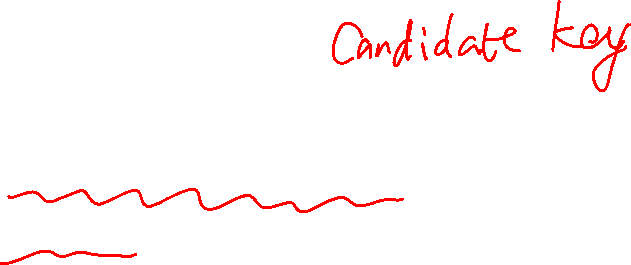 Candidate key